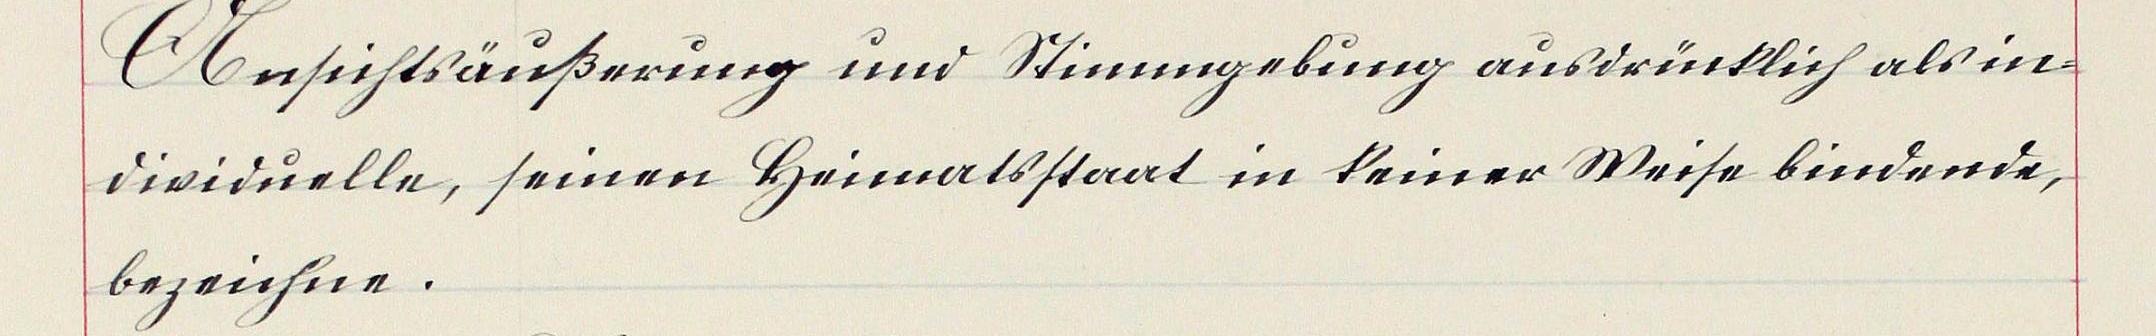 Ansichtsäußerung und Stimmgebung ausdrücklich als in=
dividuelle, seinen Heimatsstaat in keiner Weise bindende,
bezeichne.